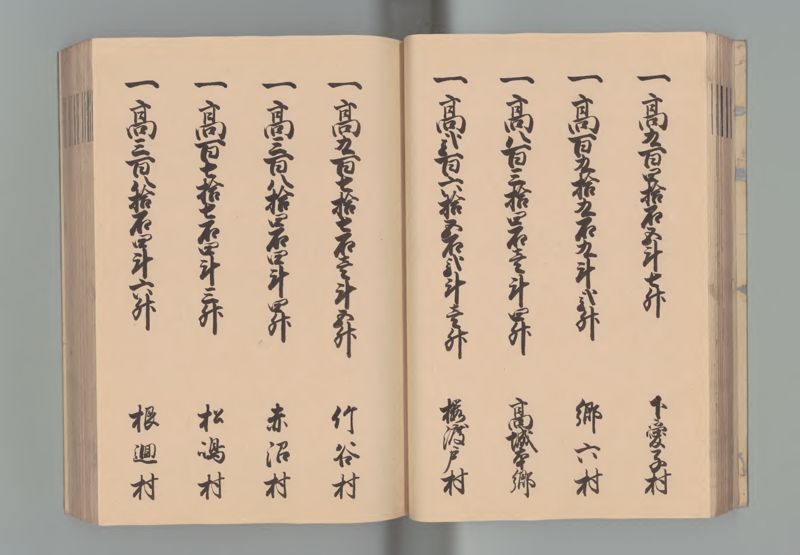 一高九百四拾石五斗七升 下愛子村
一高百九拾五石九斗弐升 郷六村
一高八百三拾四石壱斗四升 高城本郷
一高弐百六拾五石弐斗壱升 桜渡戸村
一高五百七拾七石壱斗五升 竹谷村
一高三百八拾四石四斗四升 赤沼村
一高百七拾七石四斗三升 松嶋村
一高三百八拾石四斗六升 根廻村